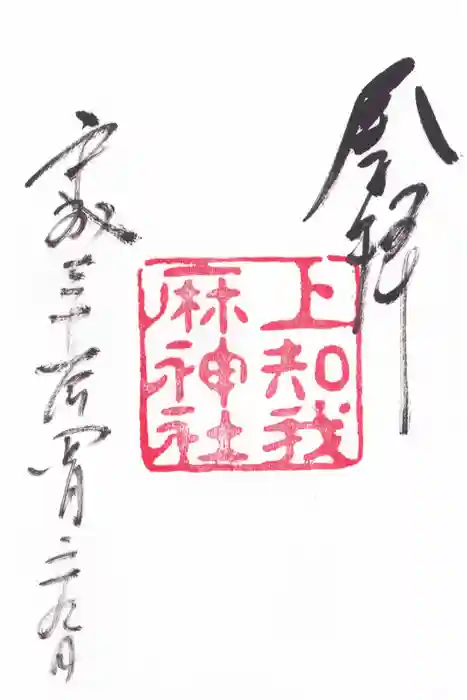 参拝
上知我
麻神社
平成三十年四月二十九日